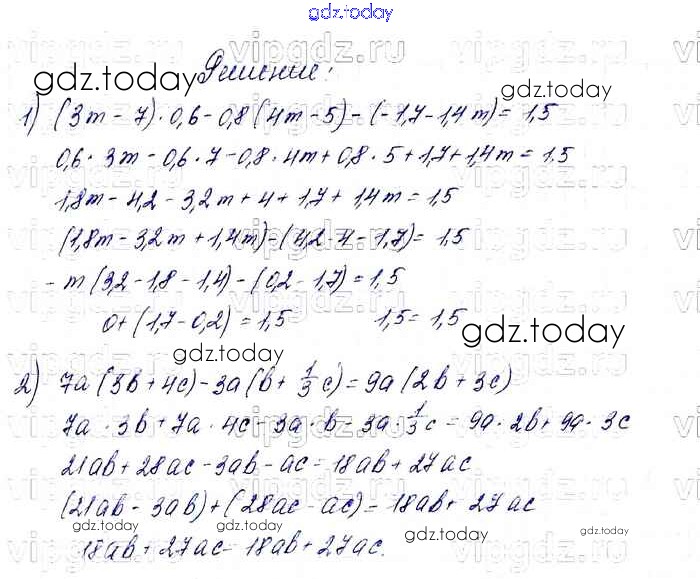 gdz.today
Решение:
1) (3m - 7) · 0,6 - 0,8 (4m - 5) - (-1,7 - 1,4m) = 1,5
0,6 · 3m - 0,6 · 7 - 0,8 · 4m + 0,8 · 5 + 1,7 + 1,4m = 1,5
1,8m - 4,2 - 3,2m + 4 + 1,7 + 1,4m = 1,5
(1,8m - 3,2m + 1,4m) - (4,2 - 4 - 1,7) = 1,5
- m (3,2 - 1,8 - 1,4) - (0,2 - 1,7) = 1,5
0 + (1,7 - 0,2) = 1,5 1,5 = 1,5
2) 7a (3b + 4c) - 3a (b + 1/3 c) = 9a (2b + 3c)
7a · 3b + 7a · 4c - 3a · b - 3a · 1/3 c = 9a · 2b + 9a · 3c
21ab + 28ac - 3ab - ac = 18ab + 27ac
(21ab - 3ab) + (28ac - ac) = 18ab + 27ac
18ab + 27ac = 18ab + 27ac.
gdz.today
gdz.today
gdz.today
gdz.today
gdz.today
gdz.today
vipgdz.ru